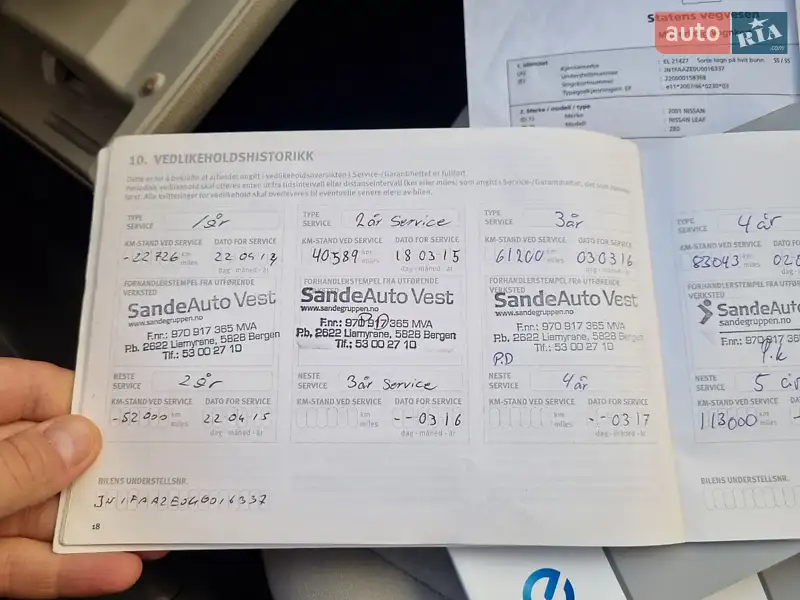 Statens vegvesen
auto RIA .com
EL 21427 Sorte tegn på hvit bunn
Kjennemerke
Understellsnummer
JN1FAAZE0U0016337
Typegodkjenningsnr. EF
e11*2007/46*0230*03
2. Merke / modell / type
Merke
2001 NISSAN
Modell
NISSAN LEAF
ZE0
10. VEDLIKEHOLDSHISTORIKK
TYPE SERVICE 1år
KM-STAND VED SERVICE DATO FOR SERVICE
-22726 km miles 22 04 13
dag - måned - år
FORHANDLERSTEMPEL FRA UTFØRENDE VERKSTED
SandeAuto Vest
www.sandegruppen.no
F.nr.: 970 917 365 MVA
P.b. 2622 Liamyrane, 5828 Bergen
Tlf.: 53 00 27 10
NESTE SERVICE 2år
KM-STAND VED SERVICE DATO FOR SERVICE
-52000 km miles 22 04 15
dag - måned - år
TYPE SERVICE 2år Service
KM-STAND VED SERVICE DATO FOR SERVICE
40589 km miles 18 03 15
dag - måned - år
FORHANDLERSTEMPEL FRA UTFØRENDE
SandeAuto Vest
www.sandegruppen.no
F.nr.: 970 917 365 MVA
P.b. 2622 Liamyrane, 5828 Bergen
Tlf.: 53 00 27 10
NESTE SERVICE 3år Service
KM-STAND VED SERVICE DATO FOR SERVICE
km miles --0316
dag - måned - år
TYPE SERVICE 3år
KM-STAND VED SERVICE DATO FOR SERVICE
61200 km miles 030316
dag - måned - år
FORHANDLERSTEMPEL FRA UTFØRENDE VERKSTED
SandeAuto Vest
www.sandegruppen.no
F.nr.: 970 917 365 MVA
P.b. 2622 Liamyrane, 5828 Bergen
Tlf.: 53 00 27 10
P.D
NESTE SERVICE 4år
KM-STAND VED SERVICE DATO FOR SERVICE
km miles --0317
dag - måned - år
TYPE SERVICE 4år
KM-STAND VED SERVICE DATO FOR
83043 km miles
FORHANDLERSTEMPEL FRA UTFØ
VERKSTED
SandeAuto
www.sandegruppen.no
F.nr.: 970 917 36
P.k
NESTE SERVICE 5 år
KM-STAND VED SERVICE DATO FOR
113000 km miles
BILENS UNDERSTELLSNR.
JN1FAAZE0U0016337
BILENS UNDERSTELLSNR.
18